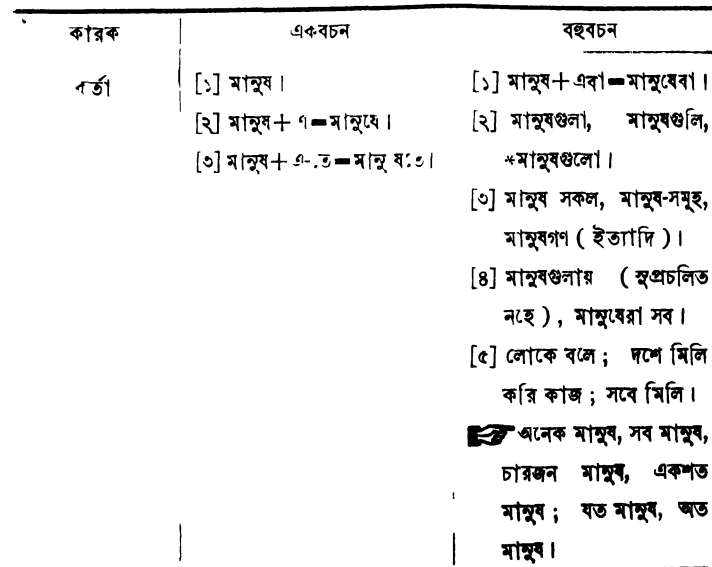 কারক একবচন বহুবচন
কর্তা [১] মানুষ। [১] মানুষ+এরা=মানুষেরা।
[২] মানুষ+এ=মানুষে। [২] মানুষগুলা, মানুষগুলি,
[৩] মানুষ+এ-তে=মানুষেতে। *মানুষগুলো।
[৩] মানুষ সকল, মানুষ-সমূহ,
মানুষগণ ( ইত্যাদি )।
[৪] মানুষগুলায় ( সুপ্রচলিত
নহে ), মানুষেরা সব।
[৫] লোকে বলে; দশে মিলি
করি কাজ; সবে মিলি।
☛ অনেক মানুষ, সব মানুষ,
চারজন মানুষ, একশত
মানুষ; যত মানুষ, অত
মানুষ।